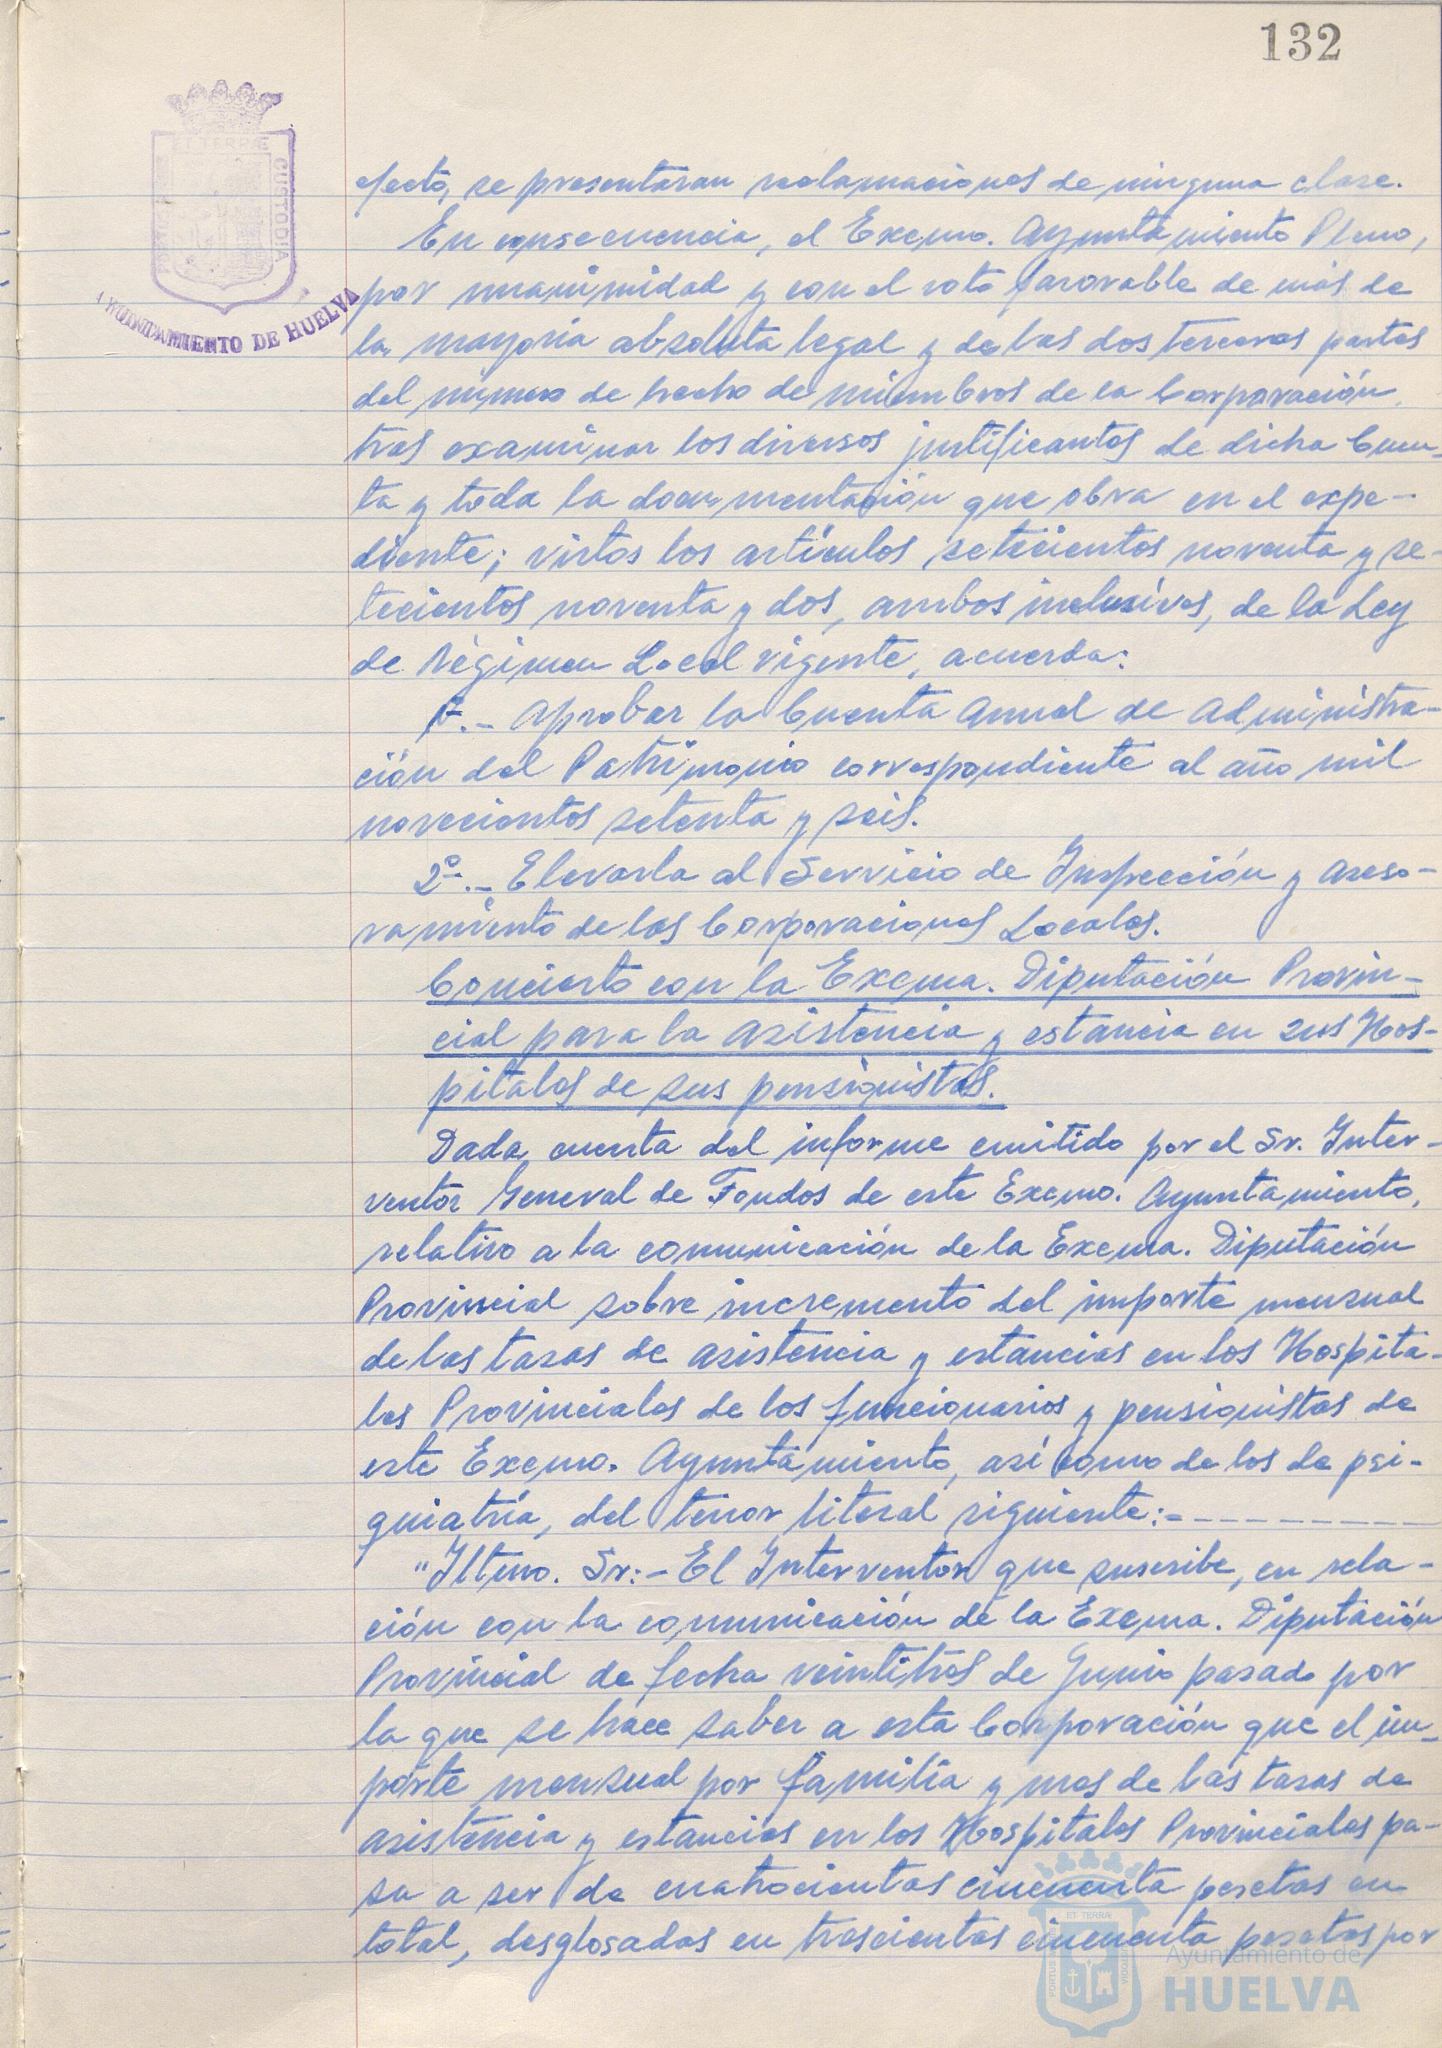 132
ET TERRÆ
CUSTODIA
PORTUS
AYUNTAMIENTO DE HUELVA
efecto, se presentaran reclamaciones de ninguna clase.
En consecuencia, el Excmo. Ayuntamiento Pleno,
por unanimidad y con el voto favorable de más de
la mayoría absoluta legal y de las dos terceras partes
del número de hecho de miembros de la Corporación,
tras examinar los diversos justificantes de dicha Cuen-
ta y toda la documentación que obra en el expe-
diente; vistos los artículos setecientos noventa y se-
tecientos noventa y dos, ambos inclusives, de la Ley
de Régimen Local vigente, acuerda:
1º.- Aprobar la Cuenta Anual de Administra-
ción del Patrimonio correspondiente al año mil
novecientos setenta y seis.
2º.- Elevarla al Servicio de Inspección y Aseso-
ramiento de las Corporaciones Locales.
Concierto con la Excma. Diputación Provin-
cial para la asistencia y estancia en sus Hos-
pitales de sus pensionistas.
Dada cuenta del informe emitido por el Sr. Inter-
ventor General de Fondos de este Excmo. Ayuntamiento,
relativo a la comunicación de la Excma. Diputación
Provincial sobre incremento del importe mensual
de las tasas de asistencia y estancias en los Hospita-
les Provinciales de los funcionarios y pensionistas de
este Excmo. Ayuntamiento, así como de los de psi-
quiatría, del tenor literal siguiente:- - - - - - - - -
"Iltmo. Sr:- El Interventor que suscribe, en rela-
ción con la comunicación de la Excma. Diputación
Provincial de fecha veintitres de Junio pasado por
la que se hace saber a esta Corporación que el im-
porte mensual por familia y mes de las tasas de
asistencia y estancias en los Hospitales Provinciales pa-
sa a ser de cuatrocientas cincuenta pesetas en
total, desglosadas en trescientas cincuenta pesetas por
ET TERRÆ
PORTUS
Ayuntamiento de
HUELVA